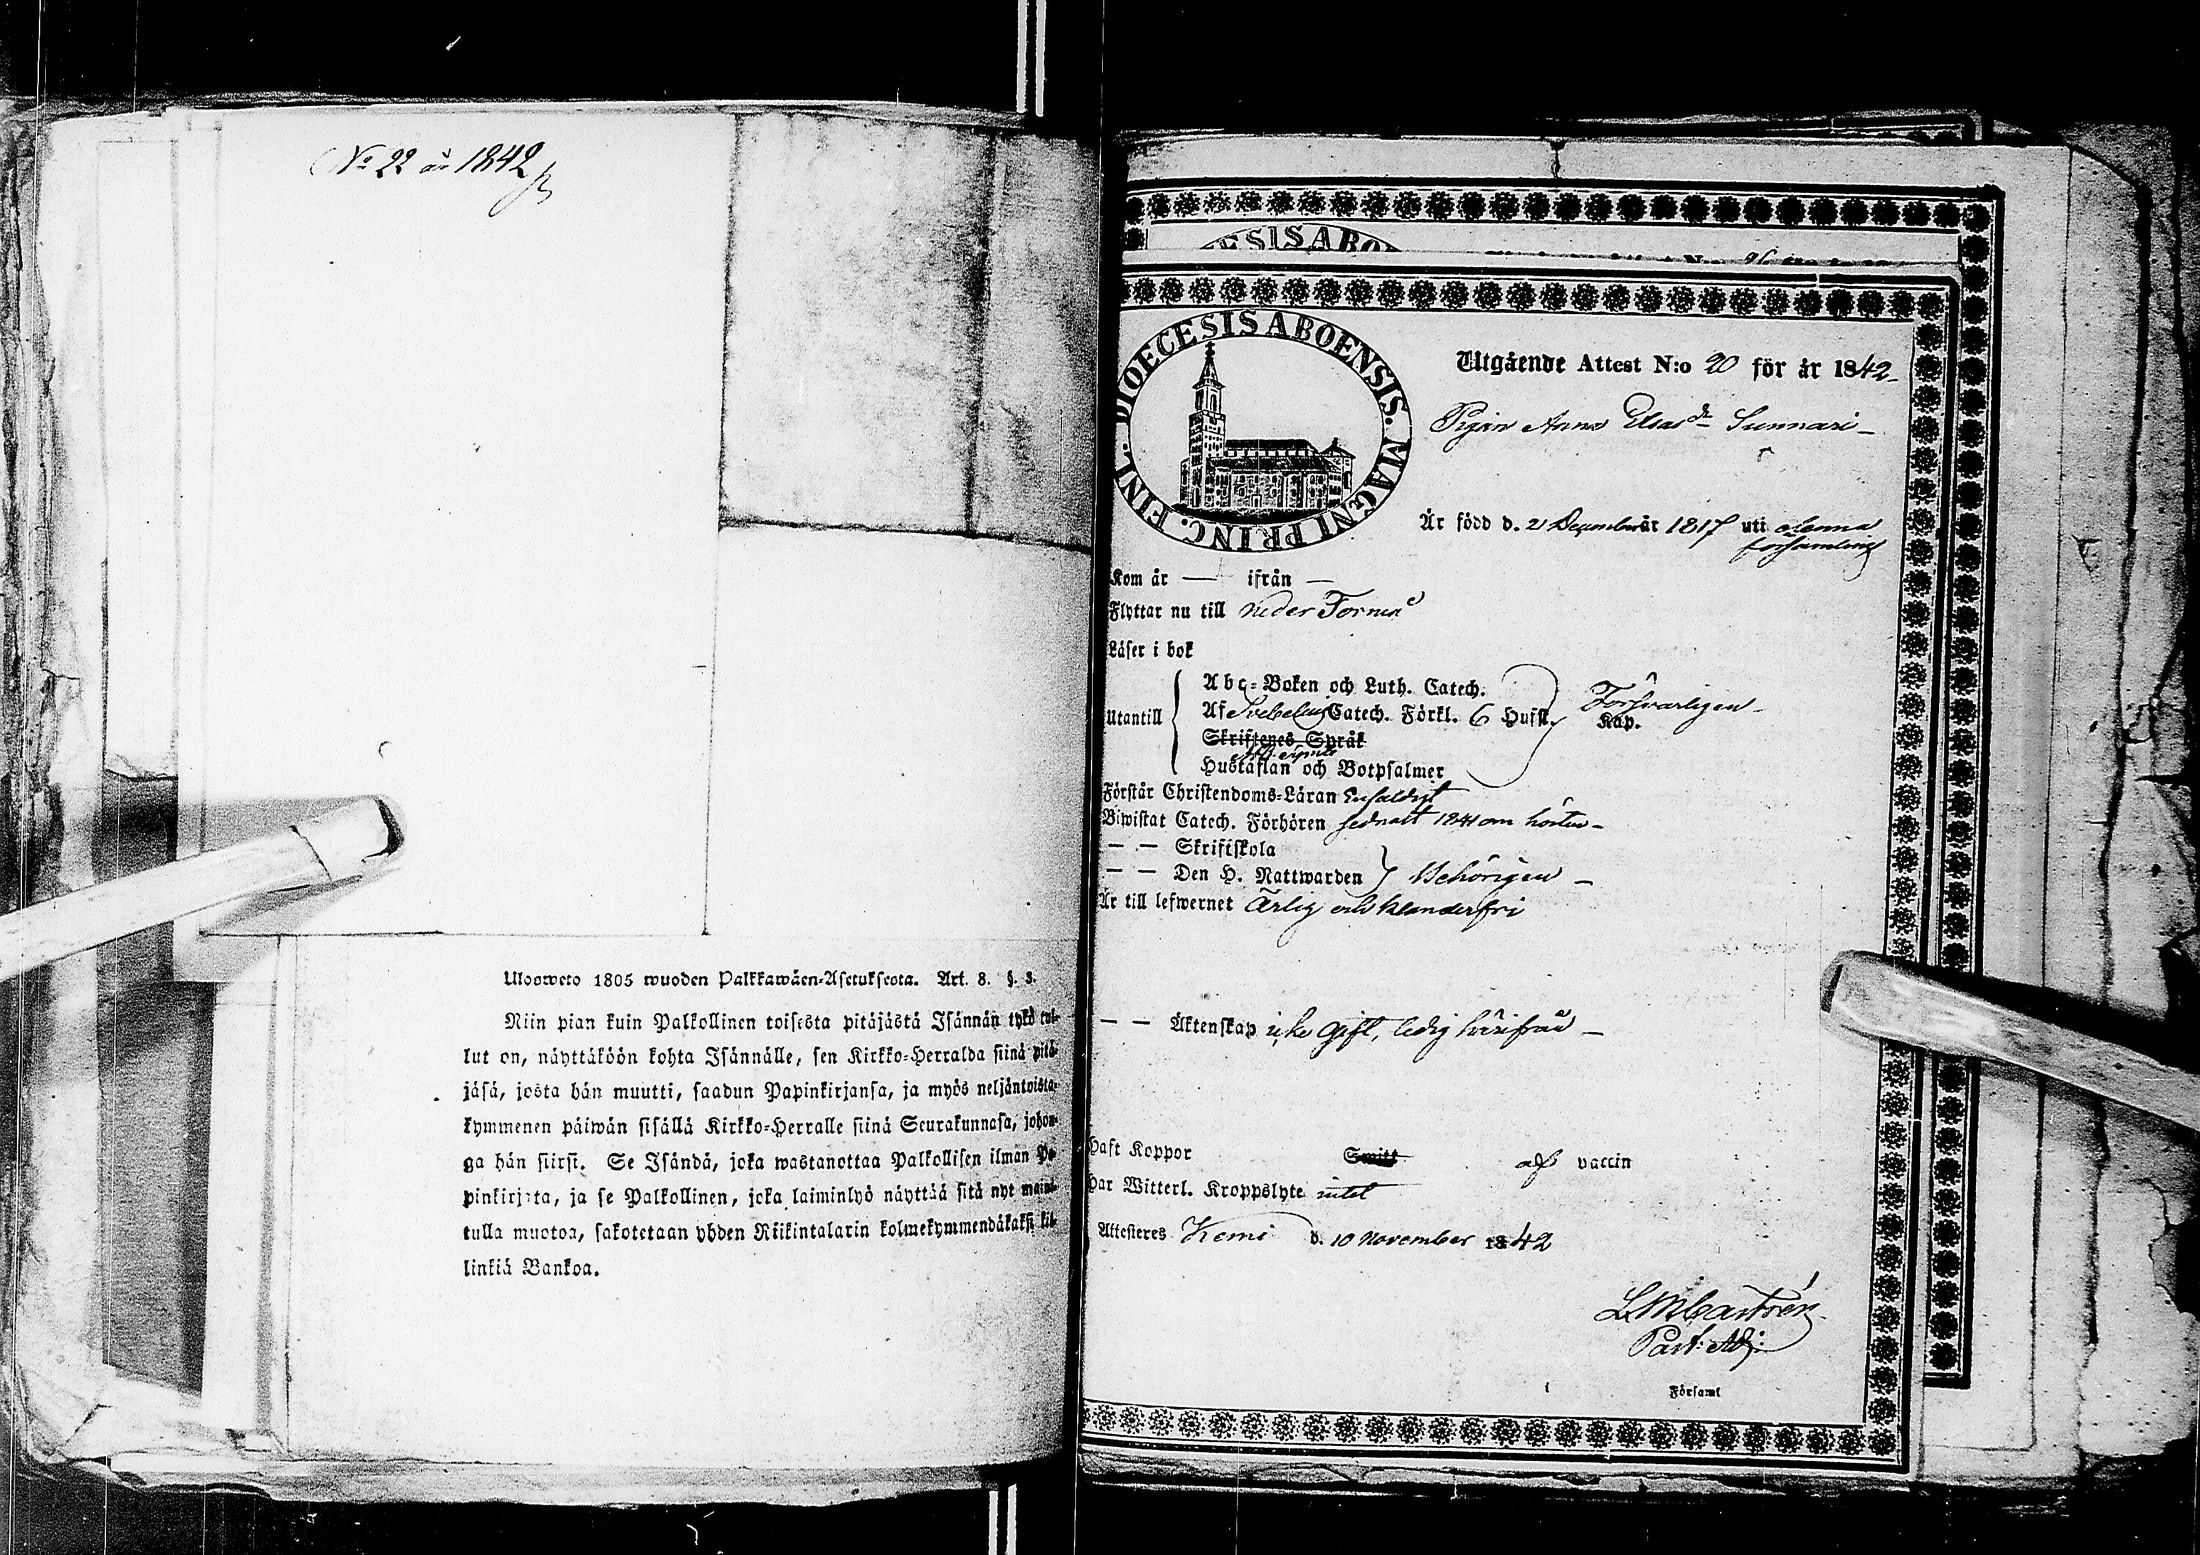 No 22 år 1842
Ulosweto 1805 wuoden Palkkawäen-Asetukseota. Art. 8. §. 3.
Niin pian kuin Palkollinen toisesta pitäjästä Isännän tykö tul-
lut on, näyttäköön kohta Isännälle, sen Kirkko-Herralda siinä pitä-
jäsä, josta hän muutti, saadun Papinkirjansa, ja myös neljäntoista-
kymmenen päiwän sisällä Kirkko-Herralle siinä Seurakunnasa, johon-
ga hän siirsi. Se Isändä, joka wastanottaa Palkollisen ilman Pa-
pinkirjata, ja se Palkollinen, joka laiminlyö näyttää sitä nyt maini-
tulla muotoa, sakotetaan yhden Riikintalarin kolmekymmendäkaksi kil-
linkiä Bankoa.
ESIS ABO
DIOECESIS ABOENSIS. MAGNI PRINC. FINL.
Utgående Attest N:o 20 för år 1842
Pigan Anna Elias dr Sunnari
Är född d. 21 December år 1817 uti denna
församling
Kom år — ifrån —
Flyttar nu till Neder Torneå
Läser i bok
Utantill
Abc-Boken och Luth. Catech.
Af Svebelii Catech. Förkl. 6 Hufst. Försvarligen
Kap.
Skriftenes Språk
Hustaflan och Botpsalmer
Förstår Christendoms-Läran Enfaldigt
Biwistat Catech. Förhören sednast 1841 om hösten
— — Skriftskola
— — Den H. Nattwarden } Behörigen
Är till lefwernet Ärlig och klanderfri
— — Äktenskap icke gift, ledig härifrån
Haft Koppor Smitt af vaccin
Har Witterl. Kroppslyte intet
Attesteres Kemi d. 10 November 1842
L M Castrén
Past: Adj:
i Församl